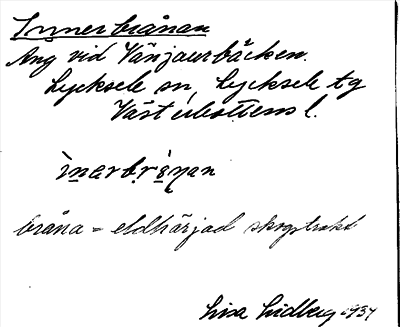 Innerbrånan
Äng vid Vänjaurbäcken.
Lycksele sn, Lycksele tg
Västerbottens l.
ìnarbrånan
bråna = eldhärjad skogstrakt
Lisa Lidberg 1934